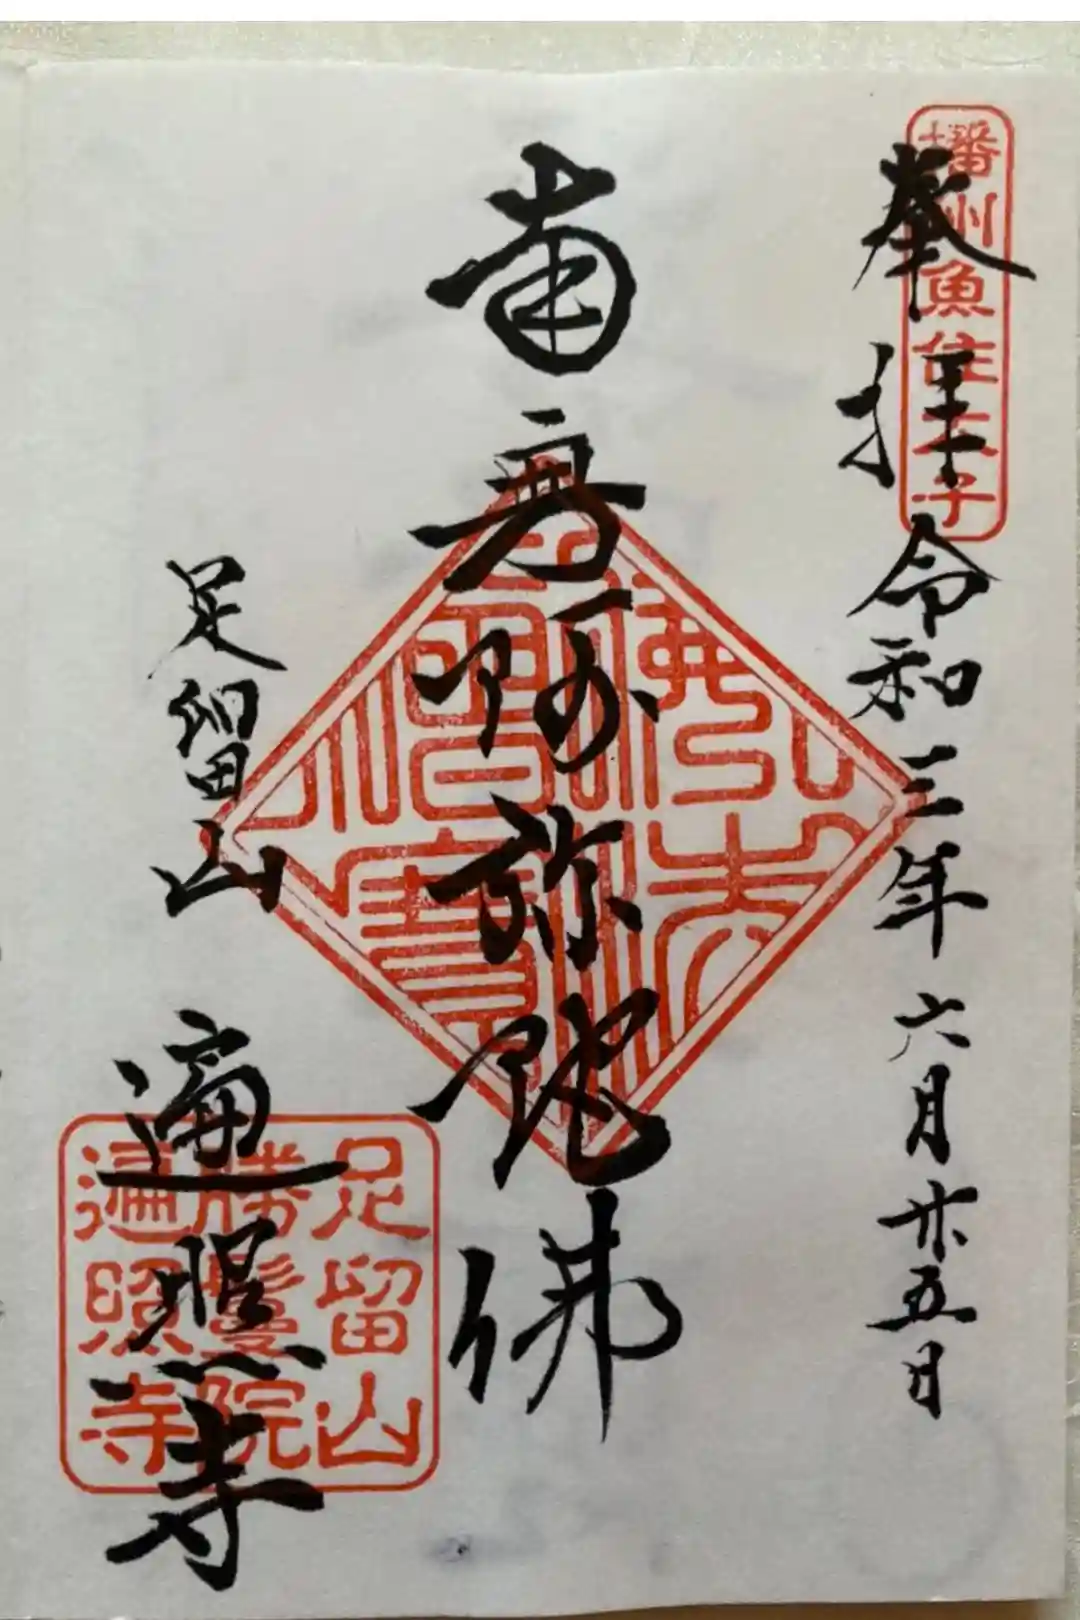 播州魚住太子
奉拝 令和三年 六月廿五日
南無阿弥陀佛
佛法
僧寶
足留山 遍照寺
足留山
勝鬘院
遍照寺